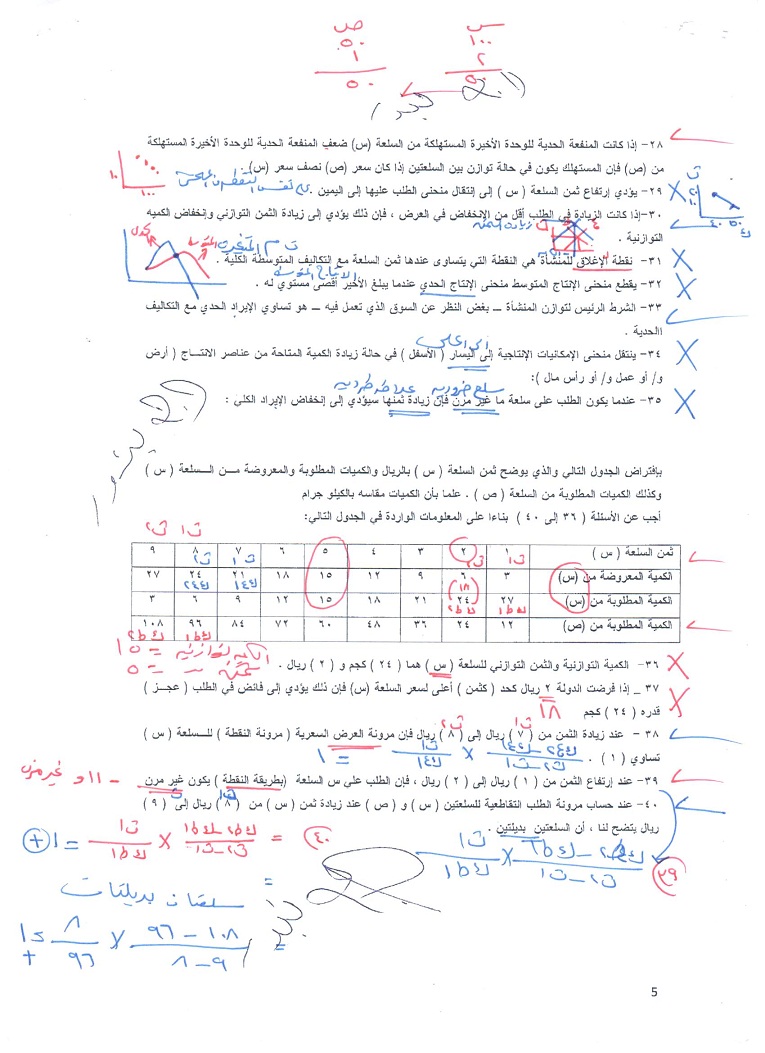 س ص
١٠٠ ٥٠
٢ ١
٥٠ ٥٠
٢٨- إذا كانت المنفعة الحدية للوحدة الأخيرة المستهلكة من السلعة (س) ضعف المنفعة الحدية للوحدة الأخيرة المستهلكة
من (ص) فإن المستهلك يكون في حالة توازن بين السلعتين إذا كان سعر (ص) نصف سعر (س).
٢٩- يؤدي إرتفاع ثمن السلعة ( س ) إلى إنتقال منحنى الطلب عليها إلى اليمين .
٣٠- إذا كانت الزيادة في الطلب أقل من الإنخفاض في العرض ، فإن ذلك يؤدي إلى زيادة الثمن التوازني وإنخفاض الكميه
التوازنية .
٣١- نقطة الإغلاق للمنشأة هي النقطة التي يتساوى عندها ثمن السلعة مع التكاليف المتوسطة الكلية .
٣٢- يقطع منحنى الإنتاج المتوسط منحنى الإنتاج الحدي عندما يبلغ الأخير أقصى مستوي له .
٣٣- الشرط الرئيس لتوازن المنشأة – بغض النظر عن السوق الذي تعمل فيه – هو تساوي الإيراد الحدي مع التكاليف
االحدية .
٣٤- ينتقل منحنى الإمكانيات الإنتاجية إلى اليسار ( الأسفل ) في حالة زيادة الكمية المتاحة من عناصر الانتـاج ( أرض
و/ أو عمل و/ أو رأس مال ):
سلع ضرورية علاقة طردية
٣٥- عندما يكون الطلب على سلعة ما غير مرن فإن زيادة ثمنها سيؤدي إلى إنخفاض الإيراد الكلي :
بإفتراض الجدول التالي والذي يوضح ثمن السلعة ( س ) بالريال والكميات المطلوبة والمعروضة مـن الـسلعة ( س )
وكذلك الكميات المطلوبة من السلعة ( ص ) . علما بأن الكميات مقاسه بالكيلو جرام
أجب عن الأسئلة ( ٣٦ إلى ٤٠ ) بناءا على المعلومات الواردة في الجدول التالي:
ث١ ث٢
ثمن السلعة ( س ) ١ ٢ ٣ ٤ ٥ ٦ ٧ ٨ ٩
الكمية المعروضة من (س) ٣ ٦ ٩ ١٢ ١٥ ١٨ ٢١ ٢٤ ٢٧
١٨
الكمية المطلوبة من (س) ٢٧ ٢٤ ٢١ ١٨ ١٥ ١٢ ٩ ٦ ٣
الكمية المطلوبة من (ص) ١٢ ٢٤ ٣٦ ٤٨ ٦٠ ٧٢ ٨٤ ٩٦ ١٠٨
٣٦- الكمية التوازنية والثمن التوازني للسلعة ( س ) هما ( ٢٤ ) كجم و ( ٢ ) ريال .
الكمية التوازنية = ١٥
٣٧ _ إذا فرضت الدولة ٢ ريال كحد ( كثمن ) أعلى لسعر السلعة (س) فإن ذلك يؤدي إلى فائض في الطلب ( عجـز )
قدره ( ٢٤ ) كجم
١٨
٣٨- عند زيادة الثمن من ( ٧ ) ريال إلى ( ٨ ) ريال فإن مرونة العرض السعرية ( مرونة النقطة ) للـسلعة ( س )
تساوي ( ١ ) .
٣٩- عند إرتفاع الثمن من ( ١ ) ريال إلى ( ٢ ) ريال ، فإن الطلب على س السلعة (بطريقة النقطة ) يكون غير مرن
٤٠- عند حساب مرونة الطلب التقاطعية للسلعتين ( س ) و ( ص ) عند زيادة ثمن ( س ) من ( ٨ ) ريال إلى ( ٩ )
ريال يتضح لنا ، أن السلعتين بديلتين .
٣٩
٤٠
سلعتان بديلتان
١٠٨ – ٩٦ × ٨
٩ – ٨ ٩٦
5